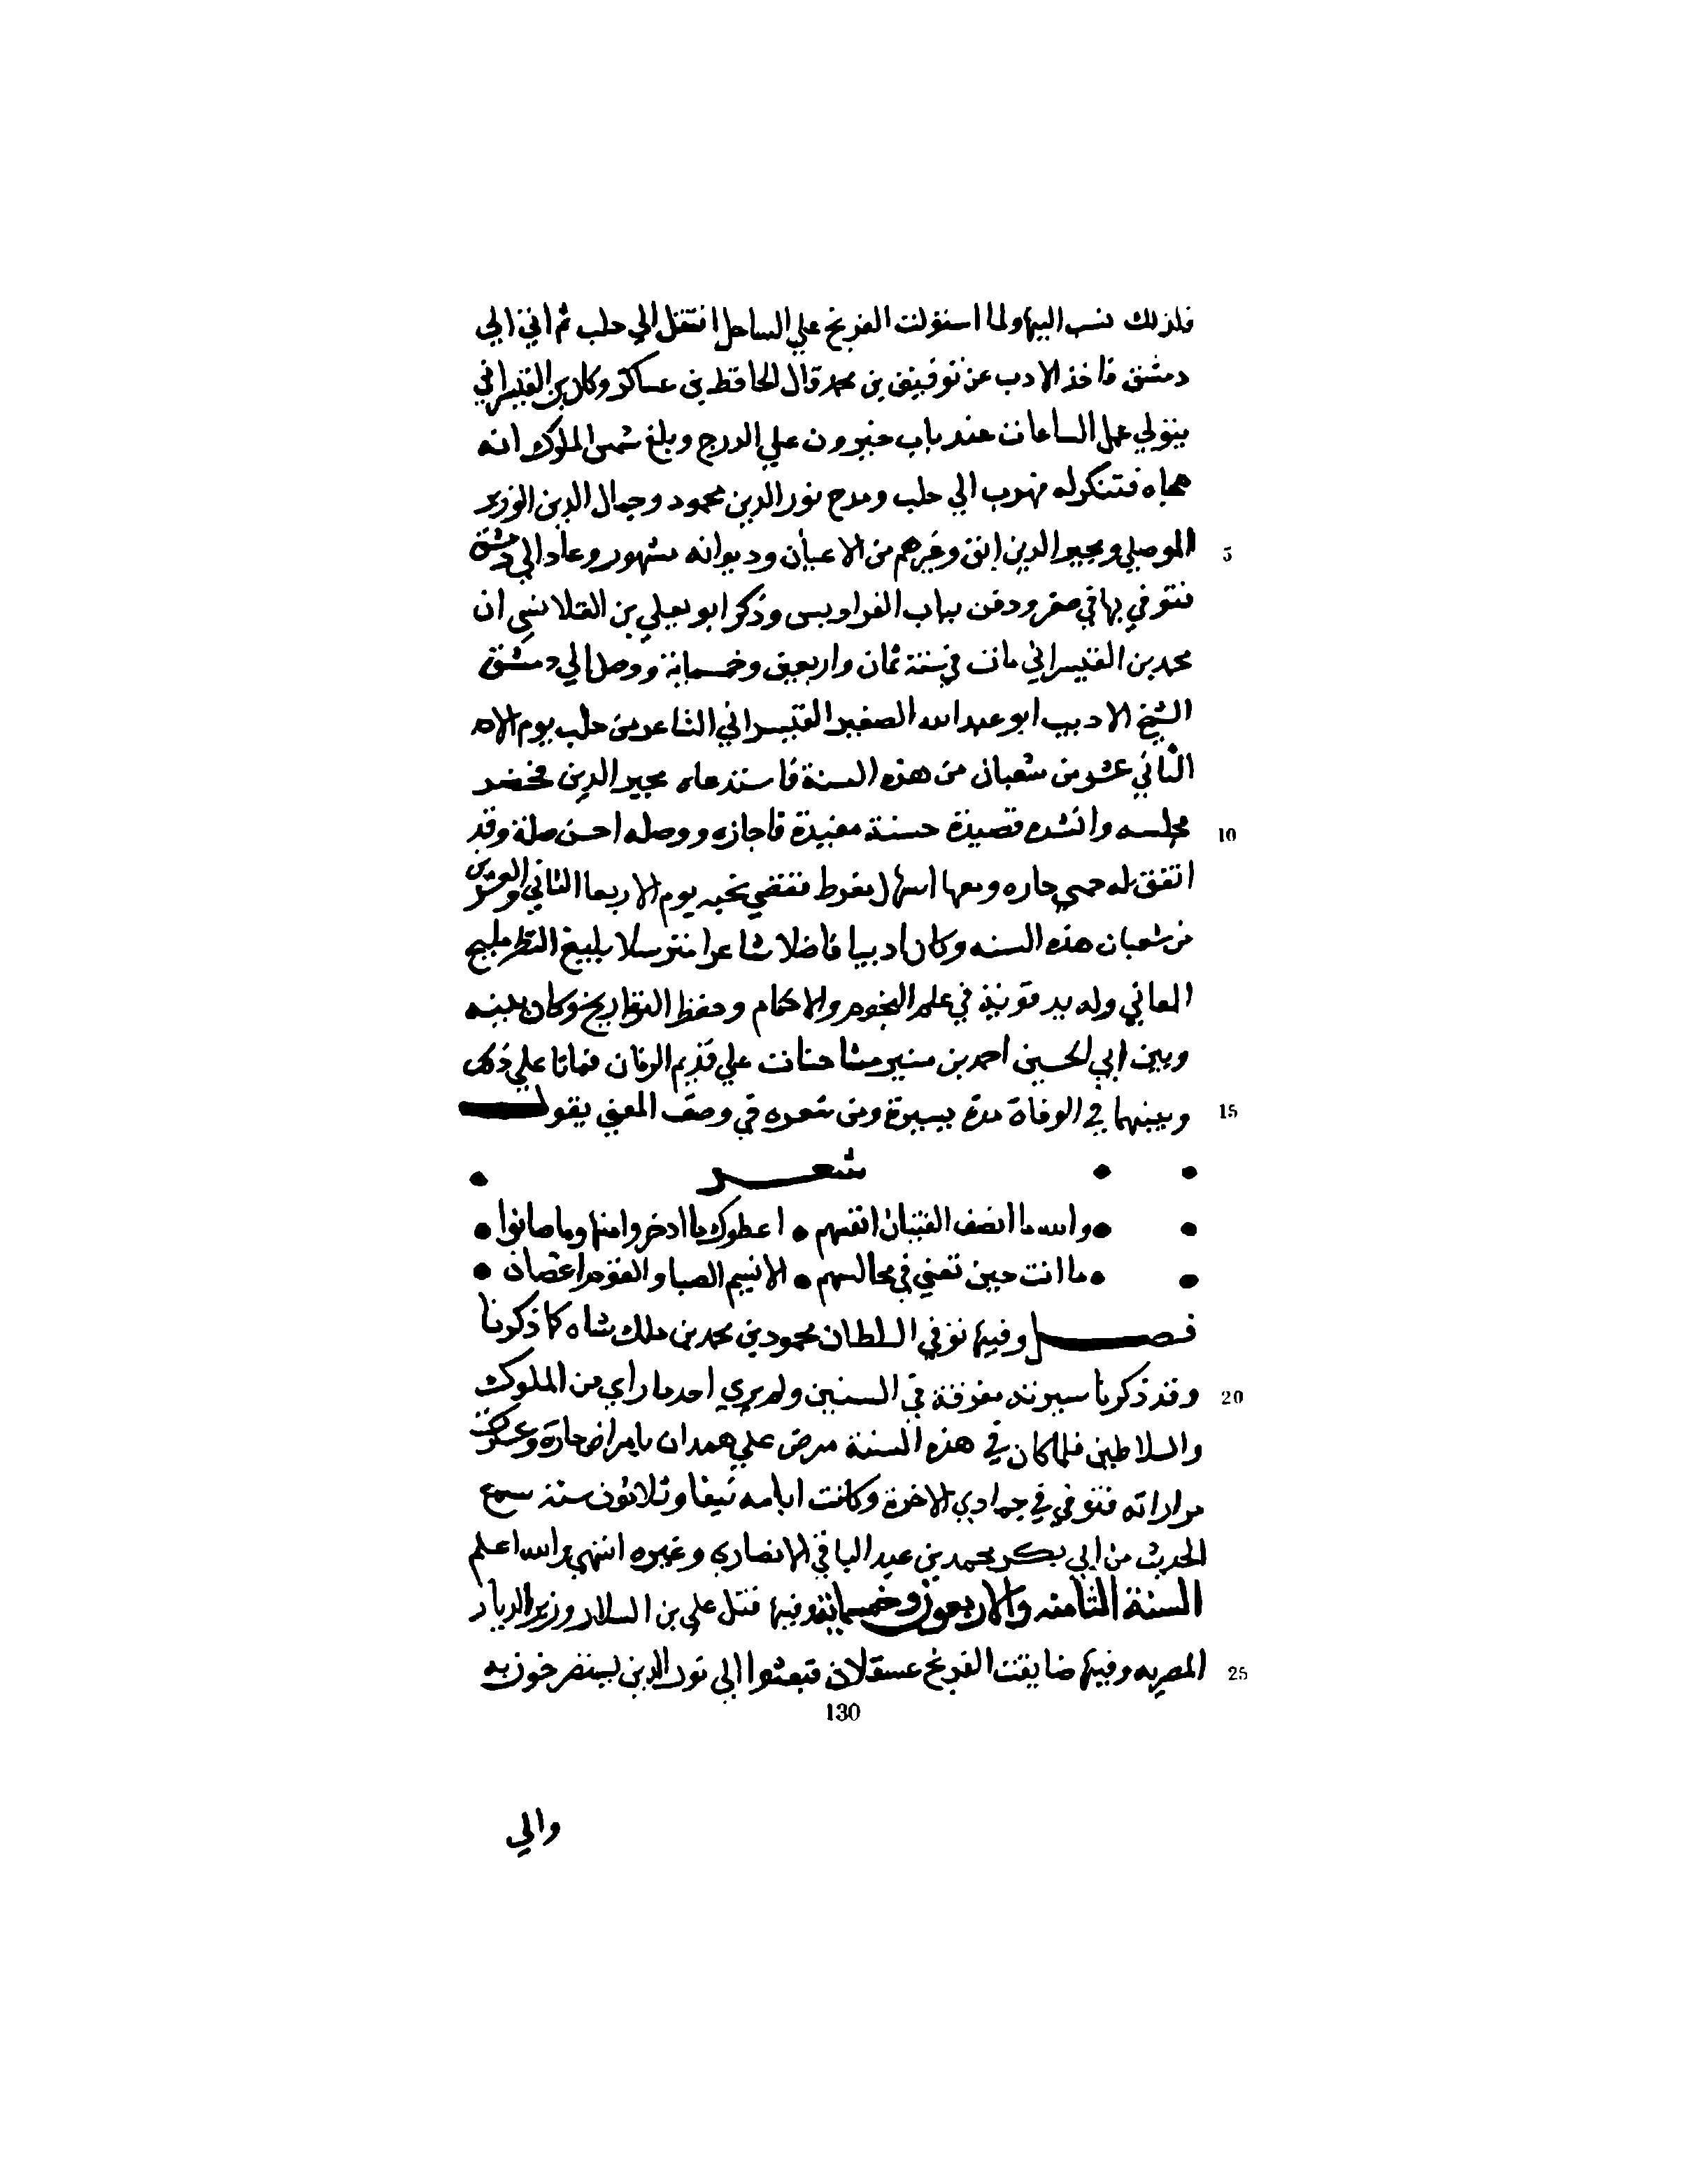 فلذلك نسب اليها ولما استولت الفرنج علي الساحل انتقل الي حلب ثم اتي الي
دمشق فاخذ الادب عن توفيق بن محمد قال الحافظ بن عساكر وكان بن القيسراني
يتولي عمل الساعات عند باب جيرون علي الدرج وبلغ شمس الملوك انه
هجاه فتنكر له فهرب الي حلب ومدح نور الدين محمود وجمال الدين الوزير
5 الموصلي ومجير الدين ابق وغيرهم من الاعيان وديوانه مشهور وعاد الي دمشق
فتوفي بها في صفر ودفن بباب الفراديس وذكر ابو يعلي بن القلانسي ان
محمد بن القيسراني مات في سنة ثمان واربعين وخمسماية ووصل الي دمشق
الشيخ الاديب ابو عبد الله الصغير القيسراني الشاعر من حلب يوم الاحد
الثاني عشر من شعبان من هذه السنة فاستدعاه مجير الدين فحضر
10 مجلسه وانشده قصيدة حسنة مفيدة فاجازه ووصله احسن صلة وقد
اتفق له حمي حاره ومعها اسهال مفرط فقضي نحبه يوم الاربعا الثاني والعشرين
من شعبان هذه السنه وكان اديبا فاضلا شاعرا مترسلا بليغ النظم مليح
المعاني وله يد قوية في علم النجوم والاحكام وحفظ التواريخ وكان بينه
وبين ابي الحسين احمد بن منير مشاحنات علي قديم الزمان فماتا علي ذلك
15 وبينهما في الوفاة مدة يسيرة ومن شعره في وصف المغني يقول
شعر
والله ما انصف الفتيان انفسهم • اعطوك ما ادخروا منها وما صانوا
ما انت حين تغني في مجالسهم • الا نسيم الصبا والقوم اغصان
فصل وفيها توفي السلطان محمود بن محمد بن ملك شاه كما ذكرنا
20 وقد ذكرنا سيرته مفرقة في السنين ولم يري احد ما راي من الملوك
والسلاطين فلما كان في هذه السنة مرض علي همدان بامراض حارة وعسكره
مراراته فتوفي في جمادي الاخرة وكانت ايامه نيفا وثلاثون سنة سمع
الحديث من ابي بكر محمد بن عبد الباقي الانصاري وغيره انتهي والله اعلم
السنة الثامنه والاربعون وخمسمائة وفيها قتل علي بن السلار وزير الديار
25 المصريه وفيها ضايقت الفرنج عسقلان فبعثوا الي نور الدين يستصرخون به
130
والي